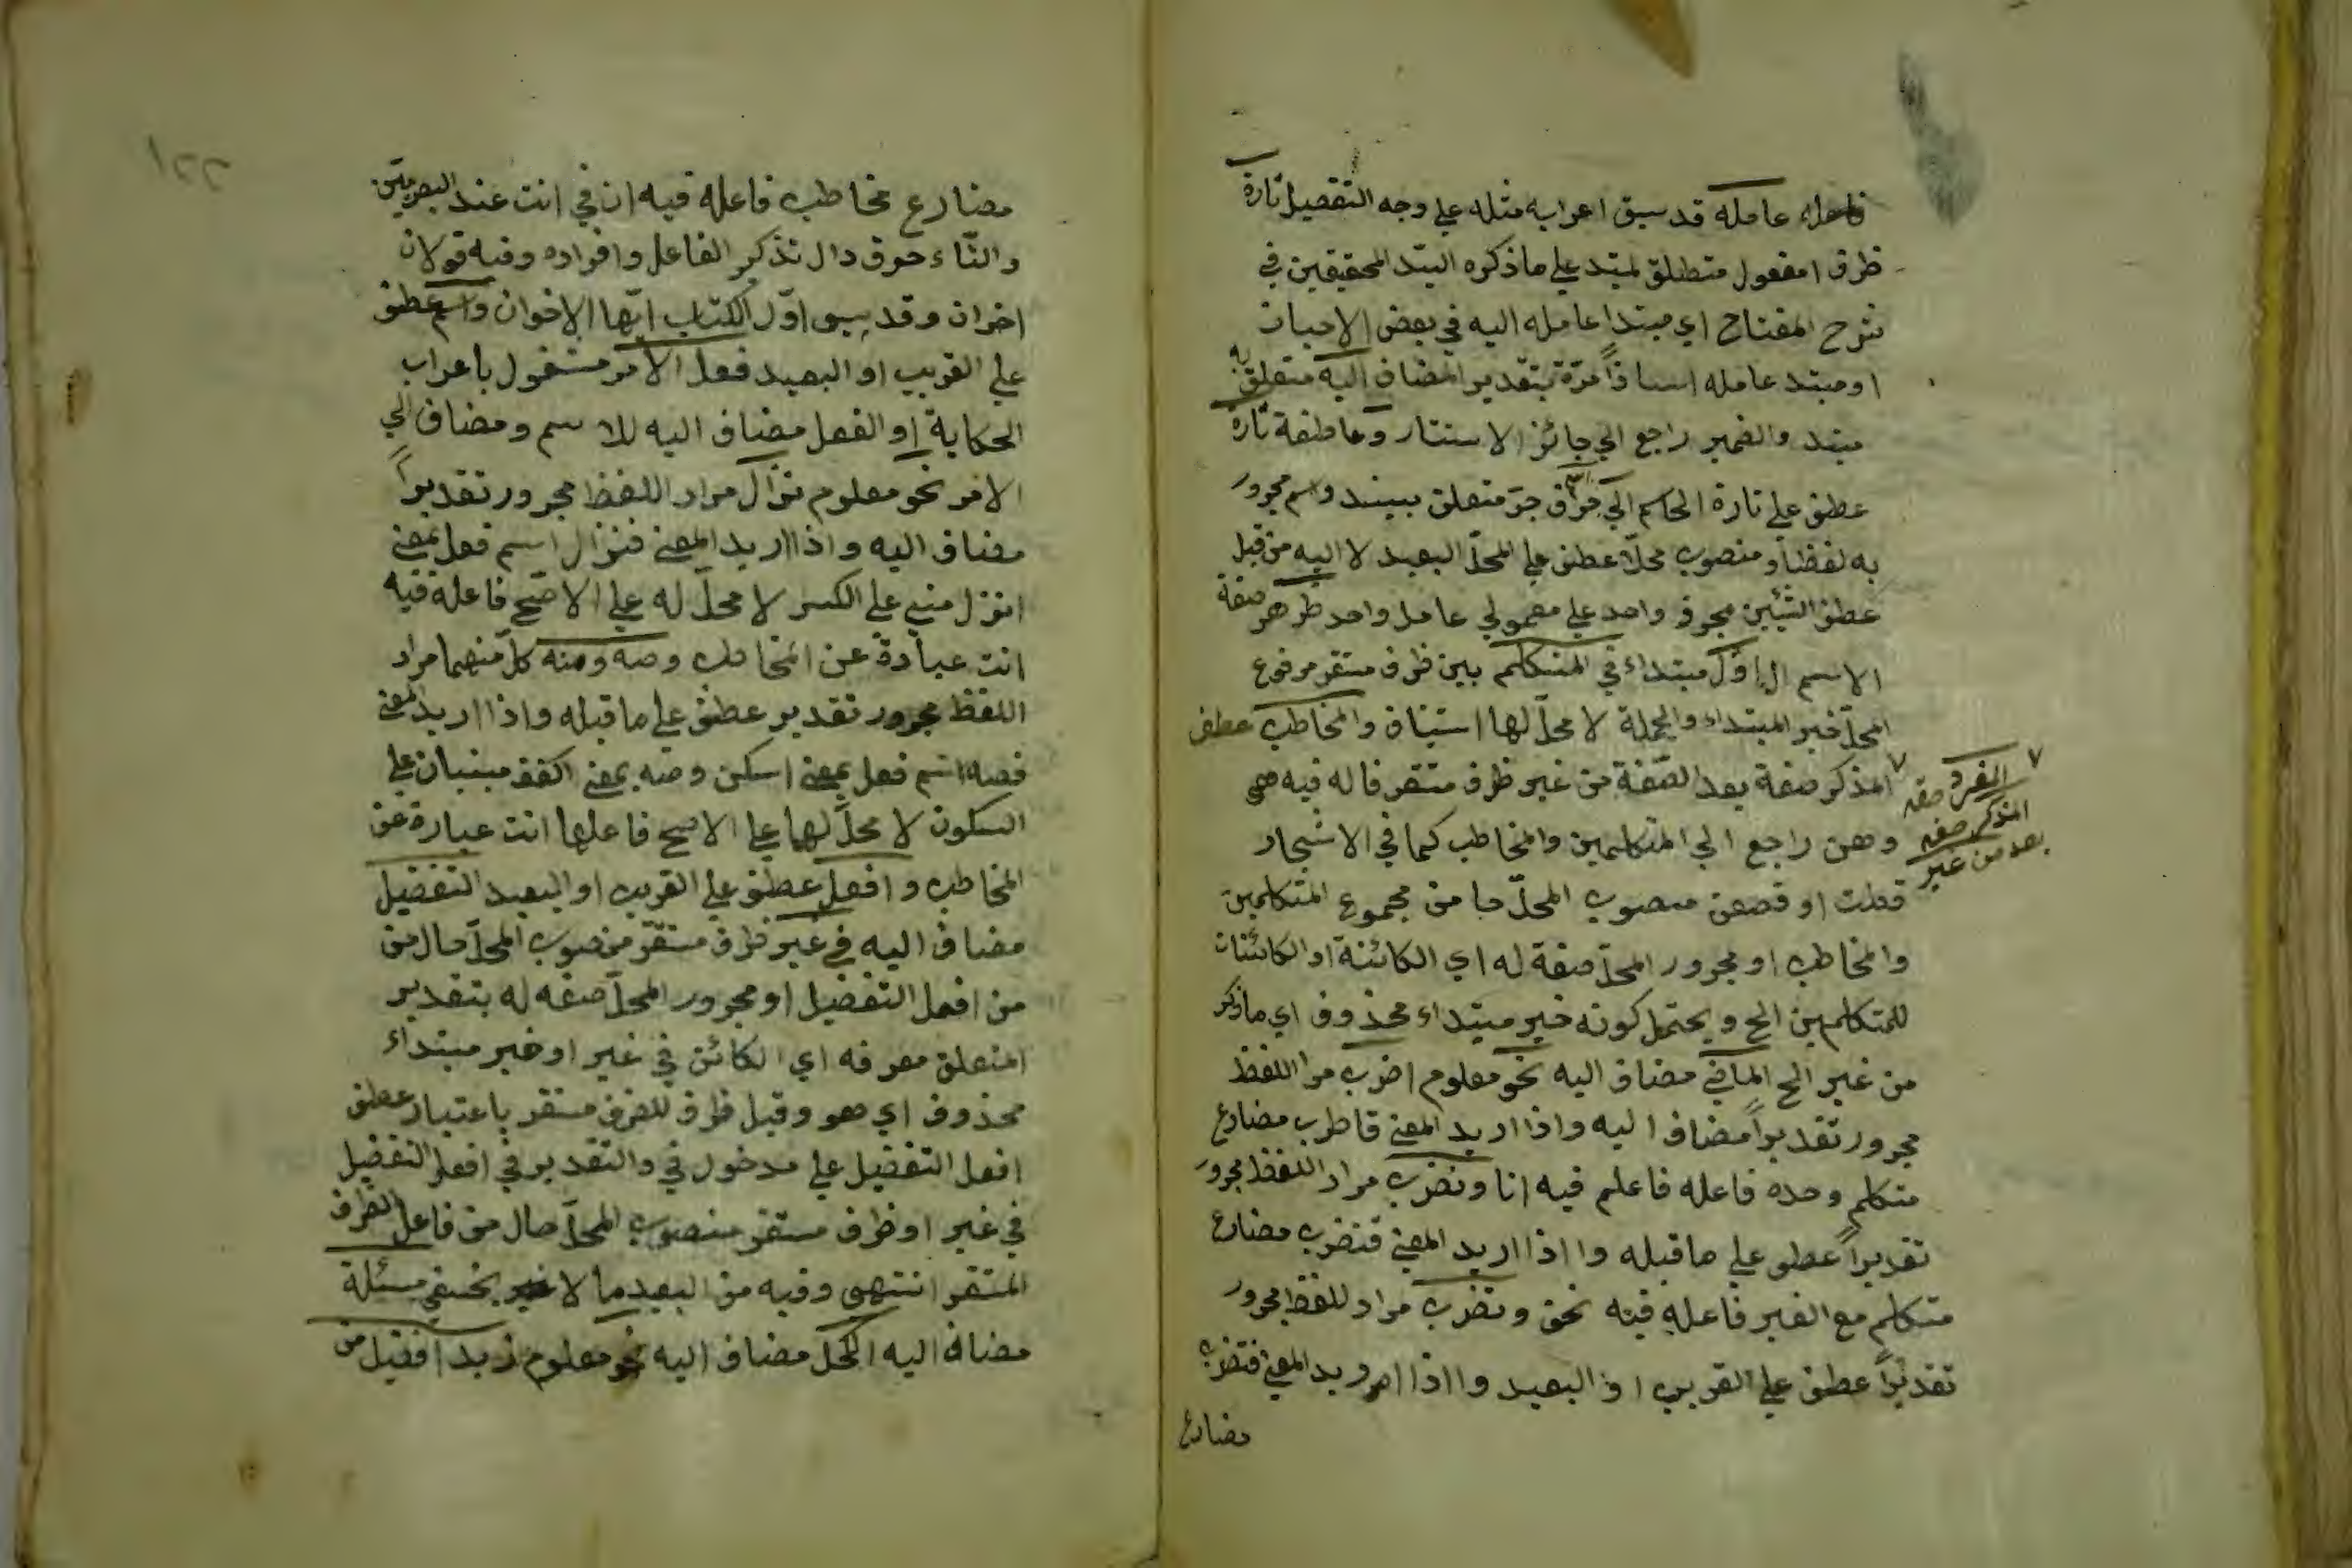 فاعله عامله قد سبق اعرابه مثله علي وجه التفصيل تارة
ظرف امفعول متطلق لمتد علي ماذكره السّد المحقيقين في
شرح المفتاح اي مبتدا عامله اليه في بعض الاحيان
اومبتد عامله اسنادًا مرّة بتقدير المضاف اليه متعلق به
مبتد والضمير راجع الي جائز الاستتار وعاطفة تارة
عطف علي تارة الحاسم الي حرف جرّ متعلق بيسند واسم مجرور
به لفظاً ومنصوب محلّا عطف علي المحلّ البعيد لا اليه من قبل
عطف الشيئين بحرف واحد علي معمولي عامل واحد ظرهر صفة
الاسم الاوّل مبتداء في المتكلم بين ظرف مستقر مرفوع
المحلّ خبر المبتداء والجملة لا محلّ لها استيناف والمخاطب عطف
المذكر صفة بعد الصّفة من غير ظرف متقر فاله فيه هي
وهن راجع الي المتكلمين والمخاطب كما في الاشجار
قطت او قصعن منصوب المحلّ حا من مجموع المتكلمين
والمخاطب او مجرور المحلّ صفة له اي الكائنة او الكائنات
للمتكلمين الح ويحتمل كونه خبر مبتداء محذوف اي ماذكر
من غير الح الماضي مضاف اليه نحو معلوم اضرب مرا اللفظ
مجرور تقديراً مضاف اليه واذا اريد المعني فاطرب مضارع
متكلم وحده فاعله فاعلم فيه انا ونضرب مراد اللفظ مجرور
تقديراً عطف علي ماقبله وا اذا اريد المعني فنضرب مضارع
متكلم مع الغير فاعله فيه نحن وتضرب مراد للفظ مجرور
تقديراً عطف علي القريب او البعيد وا اذا اريد المعني فتضرب
مضارع
المفرد صفة
المذكر صفه
بعد من غير
١٢٢
مضارع مخاطب فاعله فيه ان في انت عند البصريين
والتّاء حرف دال تذكير الفاعل وافراده وفيه قولان
اخران وقد سبق اوّل الكتاب ايّها الاخوان واسم عطف
علي القريب او البعيد فعل الامر مشغول باعراب
الحكاية او الفعل مضاف اليه للاسم ومضاف الي
الامر نحو معلوم نزال مراد اللفظ مجرور تقديراً
مضاف اليه واذا اريد المعني فنزال اسم فعل بمعني
انزل مبني علي الكسر لا محلّ له علي الاصّح فاعله فيه
انت عبارة عن المخاطب وصه ومه كلّ منهما مراد
اللفظ مجرور تقدير عطف علي ماقبله واذا اريد المعني
فصه اسم فعل بمعني اسكن ومه بمعني اكفف مبنيان علي
السكون لا محلّ لهما علي الاصح فاعلهما انت عبارة عن
المخاطب وافعل عطف علي القريب او البعيد التفضيل
مضاف اليه في غير ظرف مستقّر منصوب المحلّ حال من
من افعل التفضيل او مجرور المحلّ صفة له بتقدير
المتعلق معرفه اي الكائن في غير او خبر مبتداء
محذوف اي هو وقيل ظرف للظرف مستقر باعتبار عطف
افعل التفضيل علي مدخول في والتقدير في افعل التفضيل
في غير او ظرف مستقر منصوب المحلّ حال من فاعل الظرف
المتقر انتهي وفيه من البعيد ما لا يخفي مسئلة
مضاف اليه الكحل مضاف اليه نحو معلوم زيد افضل من